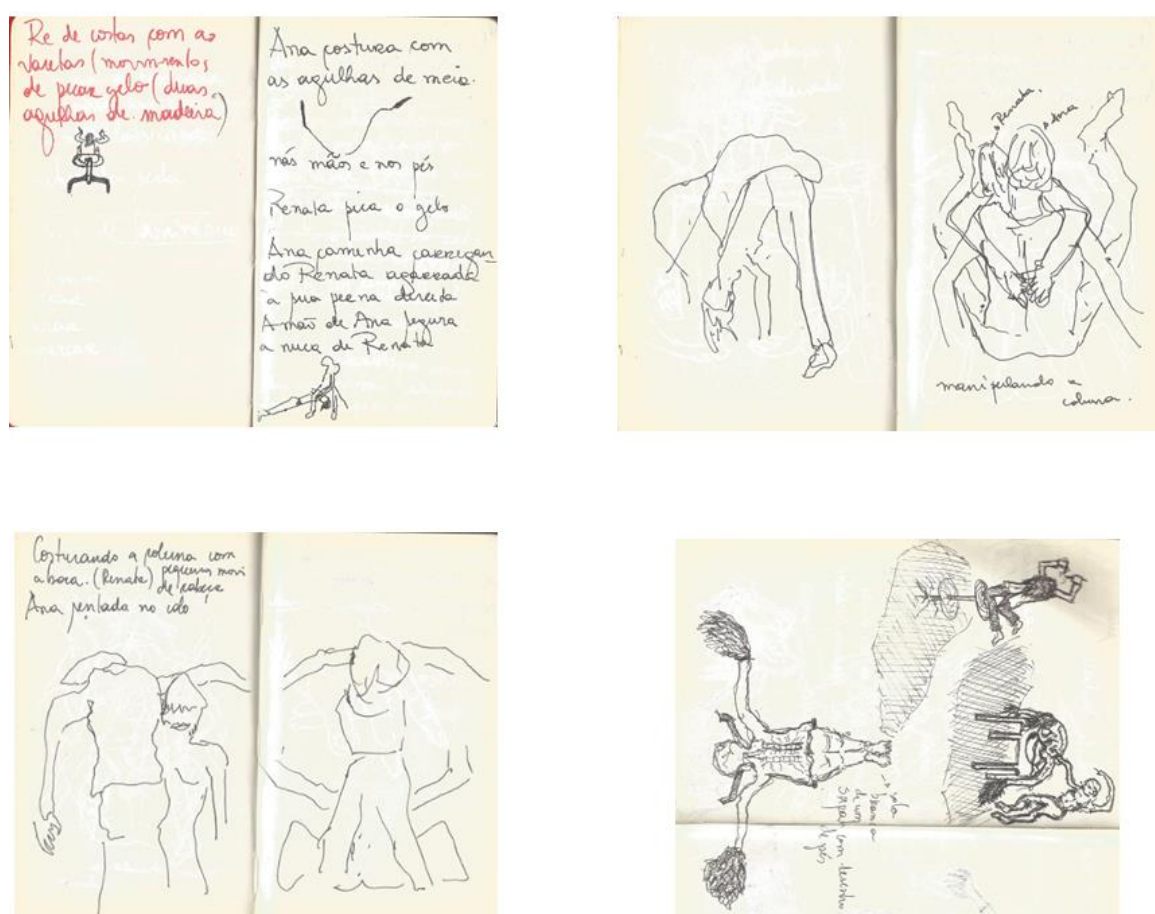 Re de costas com as
varetas (movimentos
de picar gelo (duas
agulhas de madeira)
Ana costura com
as agulhas de meia.
nas mãos e nos pés
Renata pica o gelo
Ana caminha carregan
do Renata agarrada
à sua perna direita
A mão de Ana segura
a nuca de Renata
Renata.
Ana
manipulando a
coluna.
Costurando a coluna com
a boca. (Renata) pequenos movi
de cabeça
Ana sentada no colo
sola
branca
de um
sapa com desenho
de pés